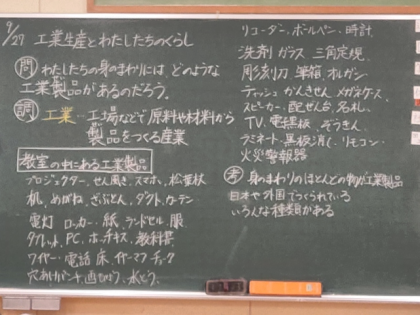 9/27 工業生産とわたしたちのくらし
問 わたしたちの身のまわりには、どのような
工業製品があるのだろう。
調 工業…工場などで原料や材料から
製品をつくる産業
教室の中にある工業製品
プロジェクター、せん風き、スマホ、松葉杖
机、めがね、ざぶとん、ダクト、カーテン
電灯 ロッカー、紙、ランドセル、服
タブレット、PC、ホッチキス、教科書
ワイヤー、電話 床、チョーク
穴あけパンチ、画びょう、水とう、
リコーダー、ボールペン、時計、
洗剤 ガラス 三角定規、
彫刻刀 筆箱、オルガン
ティッシュ かんきせん メガネケース
スピーカー、配ぜん台、名札、
TV、電子黒板、ぞうきん、
ラミネート、黒板消し、リモコン、
火災警報器
考 身のまわりのほとんどの物が工業製品
日本や外国でつくられている
いろんな種類がある